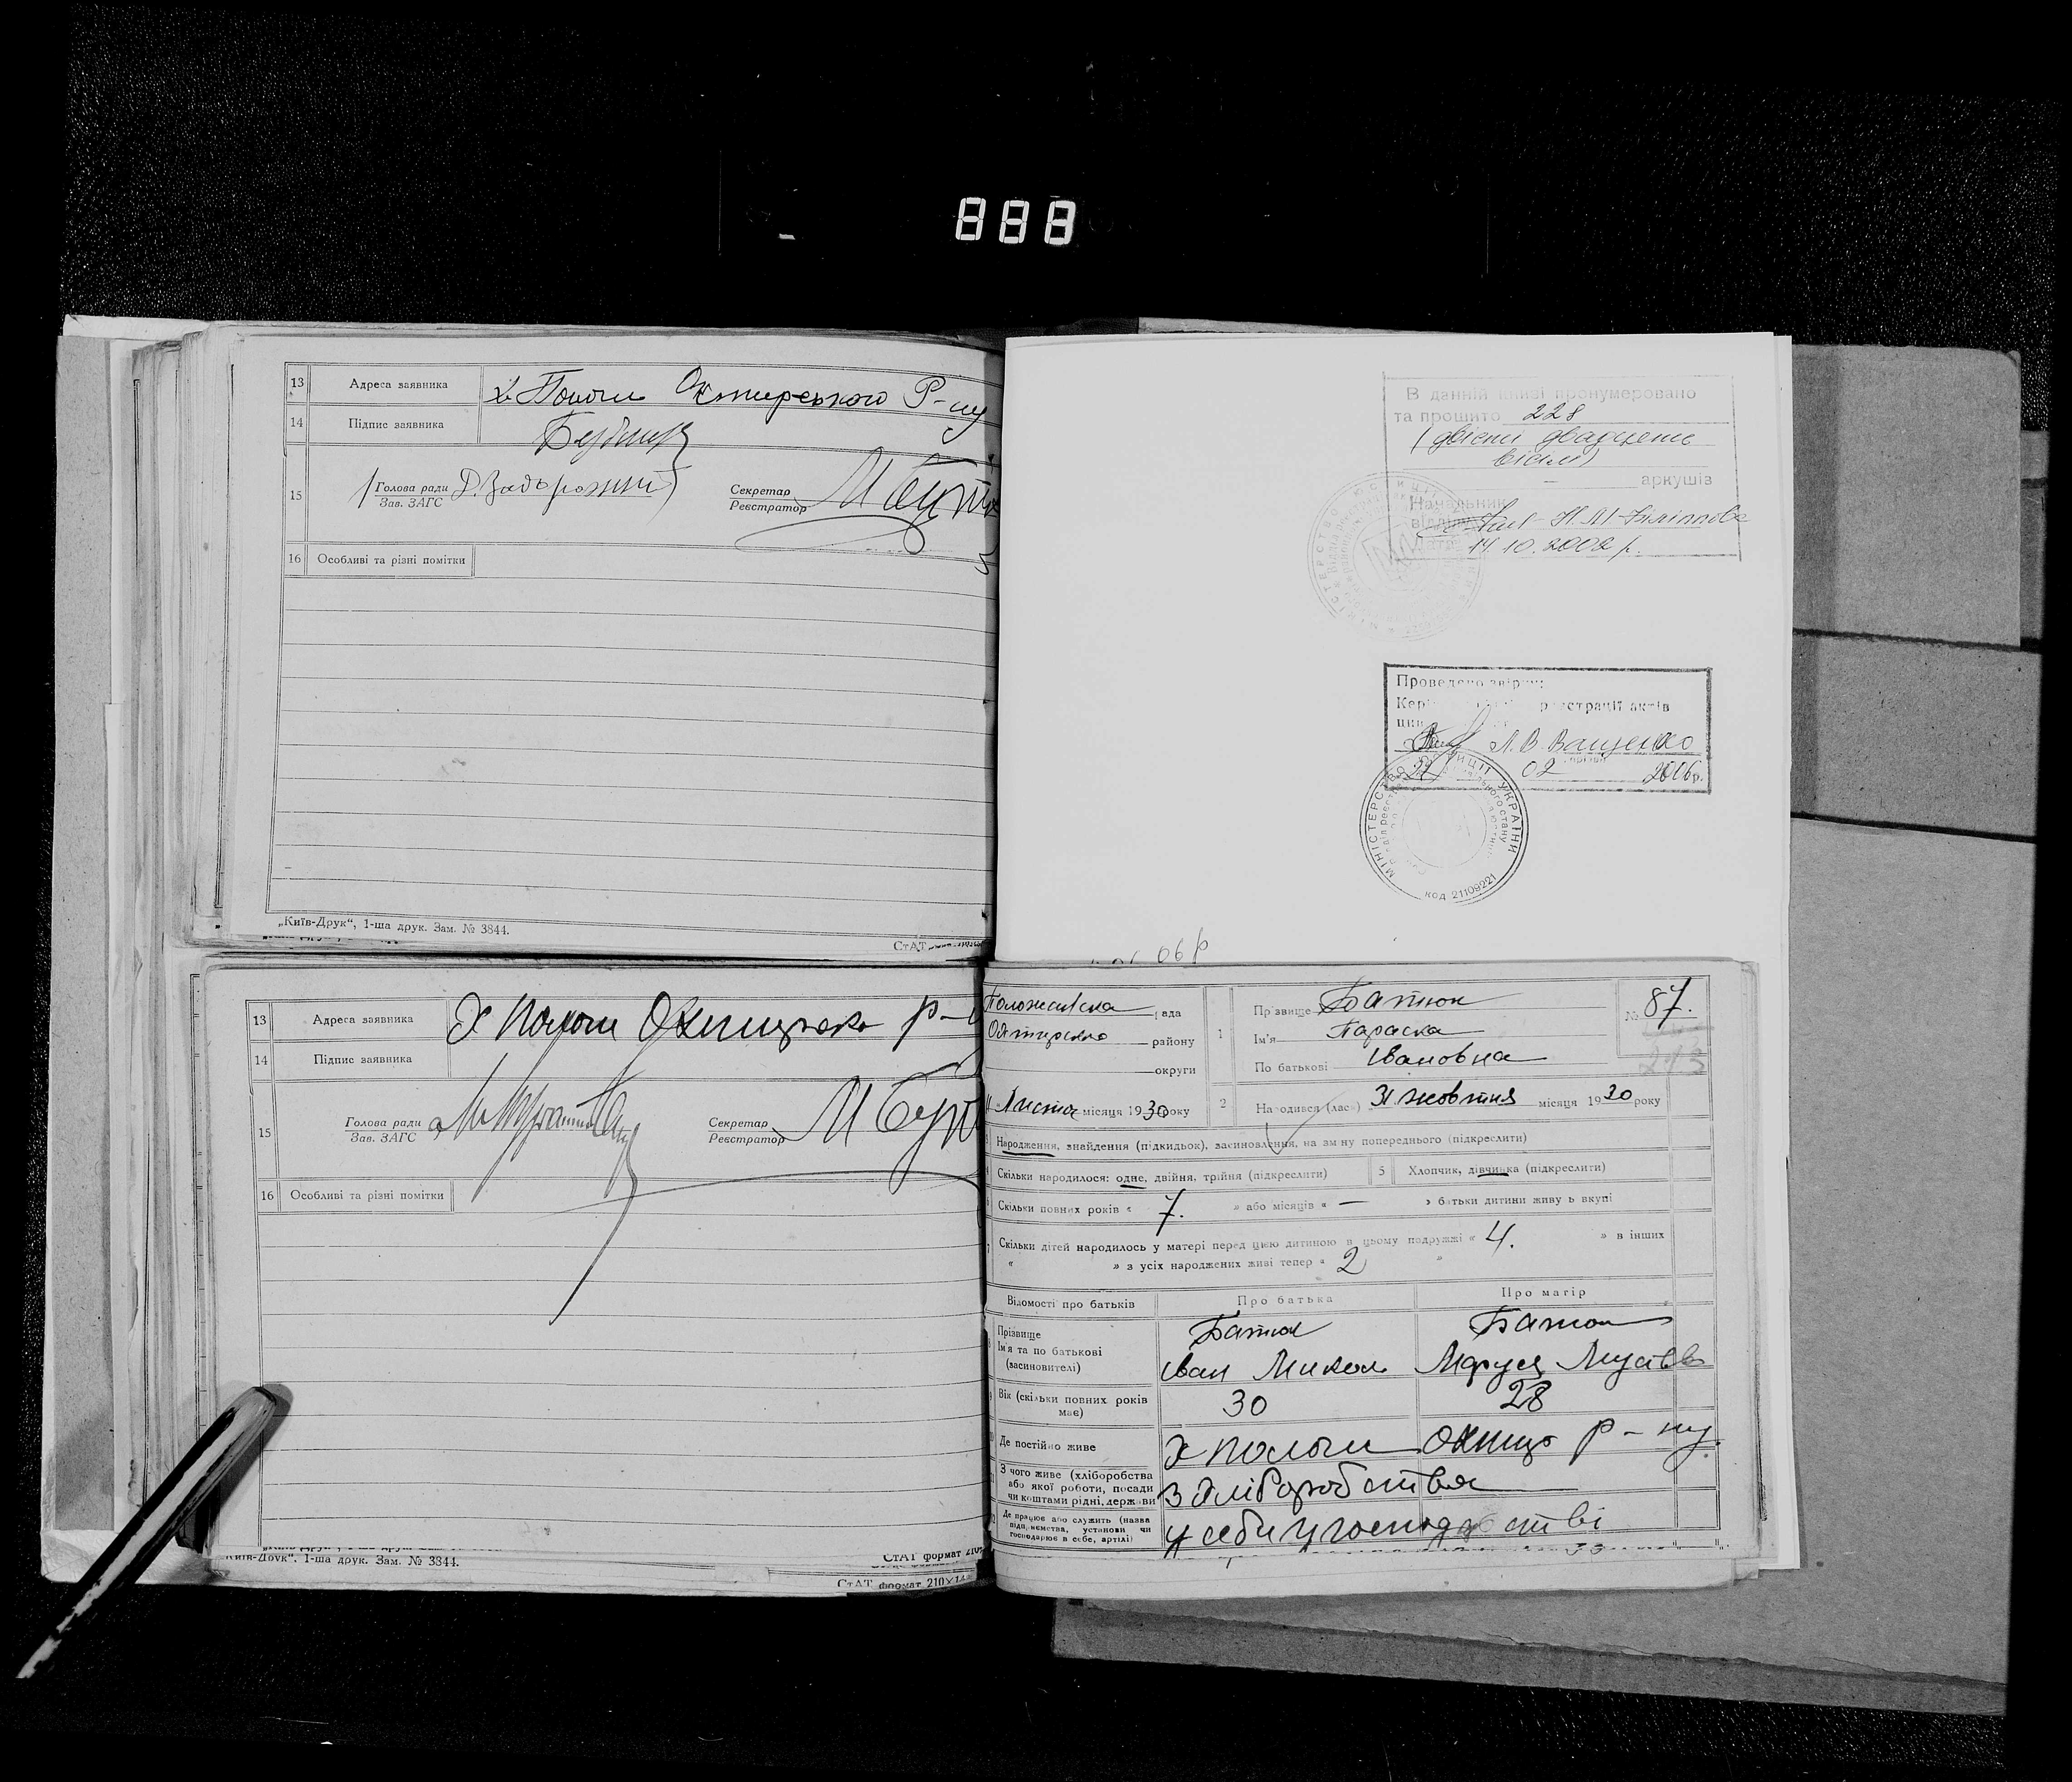 888
13 Адреса заявника х. Пологи Охтирського Р-ну
14 Підпис заявника
15 Голова ради
Зав. ЗАГС
Секретар
Реєстратор
16 Особливі та різні помітки
„Київ-Друк“, 1-ша друк. Зам. № 3844.
СтАТ
В данній книзі пронумеровано
та прошито 228
(двісті двадцять
вісім)
аркушів
Начальник
відділу
14.10.2002 р.
Проведено звірку
реєстрації актів
Л. В. Ващенко
02 2006р.
МІНІСТЕРСТВО ЮСТИЦІЇ УКРАЇНИ
код 21109221
06 р
13 Адреса заявника х Пологи р-
14 Підпис заявника
15 Голова ради
Зав. ЗАГС
Секретар
Реєстратор
16 Особливі та різні помітки
„Київ-Друк“. 1-ша друк. Зам. № 3844.
СтАТ формат 210
СтАТ формат 210×14
рада
району
округи
Листоп місяця 1930 року
1 Прізвище Батюк
Ім'я Параска
По батькові Івановна
№ 87.
213
2 Народився (лась) 31 жовтня місяця 1930 року
Народження, знайдення (підкидьок), засиновлення, на зміну попереднього (підкреслити)
Скільки народилося: одне, двійня, трійня (підкреслити)
5 Хлопчик, дівчинка (підкреслити)
Скільки повних років « 7. » або місяців « — » батьки дитини живуть вкупі
Скільки дітей народилось у матері перед цією дитиною в цьому подружжі « 4. » в інших
« » з усіх народжених живі тепер « 2 »
Відомості про батьків Про батька Про матір
Прізвище Батюк Батюк
Ім'я та по батькові
(засиновителі) Іван Микол Маруся
Вік (скільки повних років
має) 30 28
Де постійно живе х Пологи Охтир р-ну.
З чого живе (хліборобства
або якої роботи, посади
чи коштами рідні, держави З хліборобства
Де працює або служить (назва
підприємства, установи чи
господарює в себе, артілі) у себе у господарстві